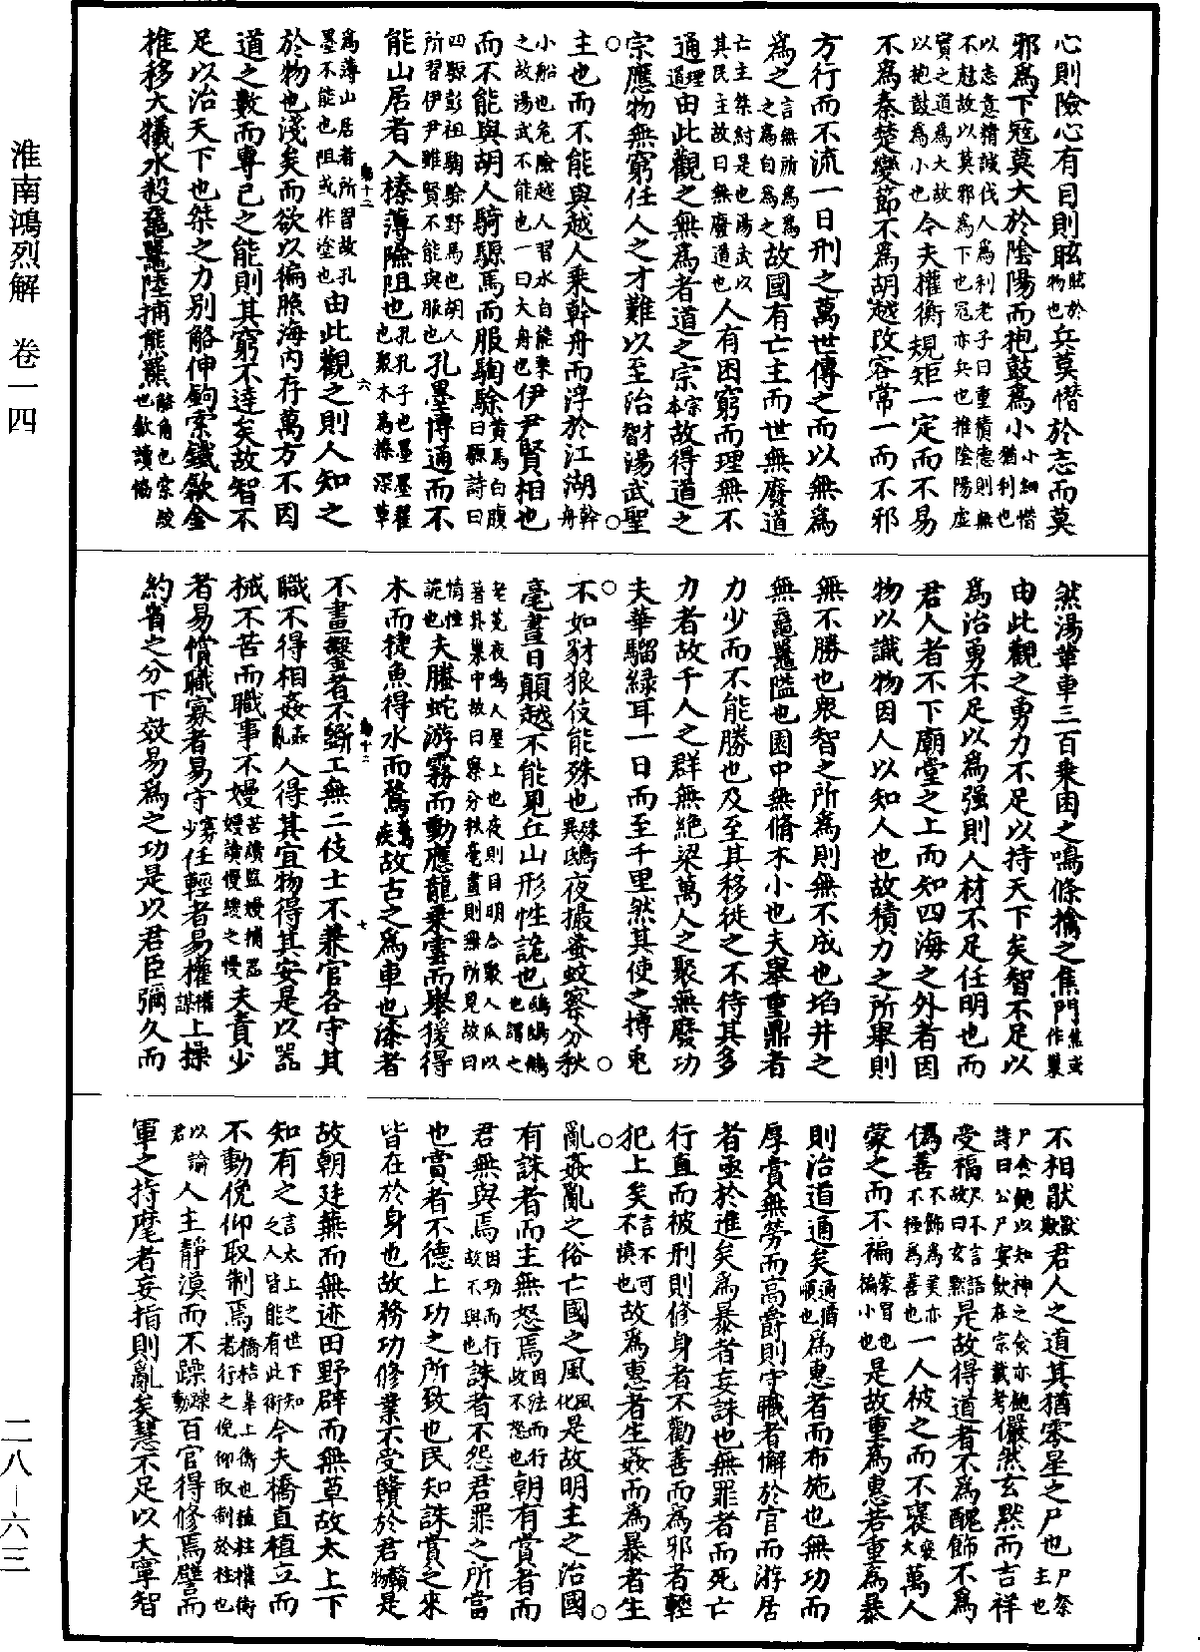 淮南鴻烈解 卷一四
二八—六三
心則險心有目則眩眩於物也兵莫憯於志而莫
邪爲下寇莫大於陰陽而枹鼓爲小小細憯猶利也
以志意精誠伐人爲利老子曰重積德則無不尅故以莫邪爲下也寇亦兵也推陰陽虛
實之道爲大故以枹鼓爲小也今夫權衡規矩一定而不易
不爲秦楚變節不爲胡越改容常一而不邪
方行而不流一日刑之萬世傳之而以無爲
爲之言無所爲爲之之爲自爲之故國有亡主而世無廢道
亡主桀紂是也湯武以其民主故曰無廢道也人有困窮而理無不
通理道由此觀之無爲者道之宗宗本故得道之
宗應物無窮任人之才難以至治才智湯武聖
主也而不能與越人乘幹舟而浮於江湖幹舟
小船也危險越人習水自能乘之故湯武不能也一曰大舟也伊尹賢相也
而不能與胡人騎騵馬而服騊駼黃馬白腹曰騵詩曰
四騵彭彭騊駼野馬也胡人所習伊尹雖賢不能與服也孔墨博通而不
能山居者入榛薄險阻也孔孔子也墨墨翟也聚木爲榛深草
爲薄山居者所習故孔墨不能也阻或作塗也由此觀之則人知之
於物也淺矣而欲以徧照海內存萬方不因
道之數而專己之能則其窮不達矣故智不
足以治天下也桀之力別觡伸鉤索鐵歙金
推移大犧水殺黿鼉陸捕熊羆觡角也索絞也歙讀協
然湯革車三百乘困之鳴條擒之焦門焦或作巢
由此觀之勇力不足以持天下矣智不足以
爲治勇不足以爲强則人材不足任明也而
君人者不下廟堂之上而知四海之外者因
物以識物因人以知人也故積力之所舉則
無不勝也衆智之所爲則無不成也埳井之
無黿鼉隘也園中無脩木小也夫舉重鼎者
力少而不能勝也及至其移徙之不待其多
力者故千人之群無絕梁萬人之聚無廢功
夫華騮綠耳一日而至千里然其使之搏兔
不如豺狼伎能殊也殊異鴟夜撮蚤蚊察分秋
毫晝日顛越不能見丘山形性詭也鴟鴟鵂也謂之
老菟夜鳴人屋上也夜則目明合聚人爪以著其巢中故曰察分秋毫晝則無所見故曰
情性詭也夫螣蛇游霧而動應龍乘雲而舉猨得
木而捷魚得水而騖騖疾故古之爲車也漆者
不畫鑿者不斲工無二伎士不兼官各守其
職不得相姦姦亂人得其宜物得其安是以器
械不苦而職事不嫚苦讀盬嫚捕器嫚讀慢緩之慢夫責少
者易償職寡者易守寡少任輕者易權權謀上操
約省之分下效易爲之功是以君臣彌久而
不相猒猒欺君人之道其猶零星之尸也尸祭主也
尸食飽以知神之食亦飽詩曰公尸宴飲在宗載考儼然玄默而吉祥
受福尸不言語故曰玄默是故得道者不爲醜飾不爲
僞善不飾爲美亦不極爲善也一人被之而不襃襃大萬人
蒙之而不褊蒙冒也褊小也是故重爲惠若重爲暴
則治道通矣通循順也爲惠者而布施也無功而
厚賞無勞而高爵則守職者懈於官而游居
者亟於進矣爲暴者妄誅也無罪者而死亡
行直而被刑則修身者不勸善而爲邪者輕
犯上矣言不可不讀也故爲惠者生姦而爲暴者生
亂姦亂之俗亡國之風風化是故明主之治國
有誅者而主無怒焉因法而行故不怒也朝有賞者而
君無與焉因功而行故不與也誅者不怨君罪之所當
也賞者不德上功之所致也民知誅賞之來
皆在於身也故務功修業不受贛於君贛物是
故朝廷蕪而無迹田野辟而無草故太上下
知有之言太上之世下知之人皆能有此術今夫橋直植立而
不動俛仰取制焉橋桔皋上衡也植柱權衡者行之俛仰取制於柱也
以諭君人主靜漠而不躁躁動百官得修焉譬而
軍之持麾者妄指則亂矣慧不足以大寧智